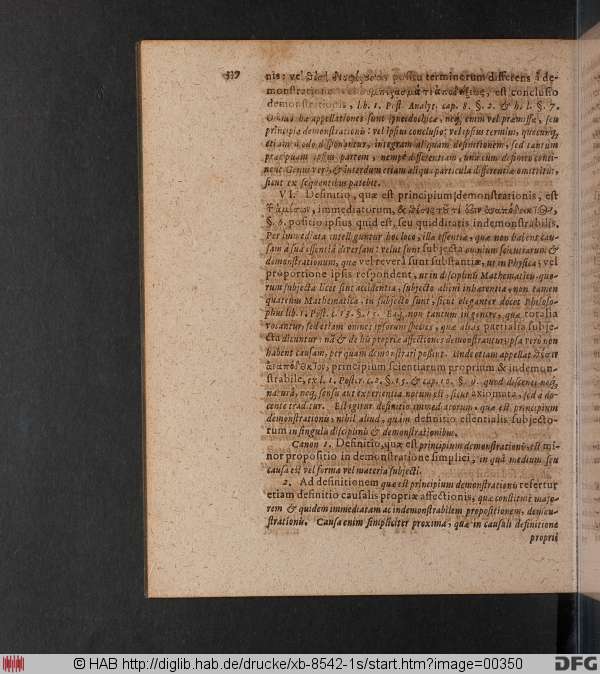 337
nis: vel positu terminorum differens à de-
monstratione est conclusio
demonstrationis, lib. 1. Post. Analyt. cap. 8. §. 2. & h. l. §. 7.
Omnes hæ appellationes sunt synecdochicæ, neq, enim vel præmissæ, seu
principia demonstrationis: vel ipsius conclusio: vel ipsius termini, quocunq,
etiam modo disponantur, integram aliquam definitionem, sed tantum
præcipuam ipsius partem, nempe differentiam, unà cum definito conti-
nent. Genus verò, & interdum etiam aliqua particula differentiæ omittitur,
sicut ex sequentibus patebit.
VI. Definitio, quæ est principium demonstrationis, est
immediatorum, &
§. 6. positio ipsius quid est, seu quidditatis indemonstrabilis.
Per immediata intelliguntur hoc loco, illa essentia, quæ non habent cau-
sam à sua essentia diversam: velut sunt subjecta omnium scientiarum &
demonstrationum, quæ vel reverà sunt substantiæ, ut in Physica; vel
proportione ipsis respondent, ut in disciplinis Mathematicis, quo-
rum subjecta licet sint accidentia, subjecto alicui inhærentia, non tamen
quatenus Mathematica, in subjecto sunt, sicut eleganter docet Philoso-
phus lib. 1. Post. c. 13. §. 15. Eaq, non tantum in genere, quæ totalia
vocantur, sed etiam omnes ipsorum species, quæ aliàs partialia subje-
cta dicuntur: nã & de his propriæ affectiones demonstrantur, ipsa verò non
habent causam, per quam demonstrari possint. Unde etiam appellat
principium scientiarum proprium & indemon-
strabile, ex l. 1. Poster. c. 2. §. 15. & cap. 10. §. 9. quod discenti neq,
naturâ, neq, sensu aut experientia notum est, sicut axiomata, sed à do-
cente traditur. Est igitur definitio immediatorum, quæ est principium
demonstrationis, nihil aliud, quàm definitio essentialis subjecto-
rum in singulis disciplinis & demonstrationibus.
Canon 1. Definitio, quæ est principium demonstrationis, est mi-
nor propositio in demonstratione simplici, in quâ medium seu
causa est vel forma vel materia subjecti.
2. Ad definitionem quæ est principium demonstrationis refertur
etiam definitio causalis propriæ affectionis, quæ constituit majo-
rem & quidem immediatam ac indemonstrabilem propositionem, demon-
strationis. Causa enim simpliciter proxima, quæ in causali definitione
proprii
© HAB http://diglib.hab.de/drucke/xb-8542-1s/start.htm?image=00350
DFG